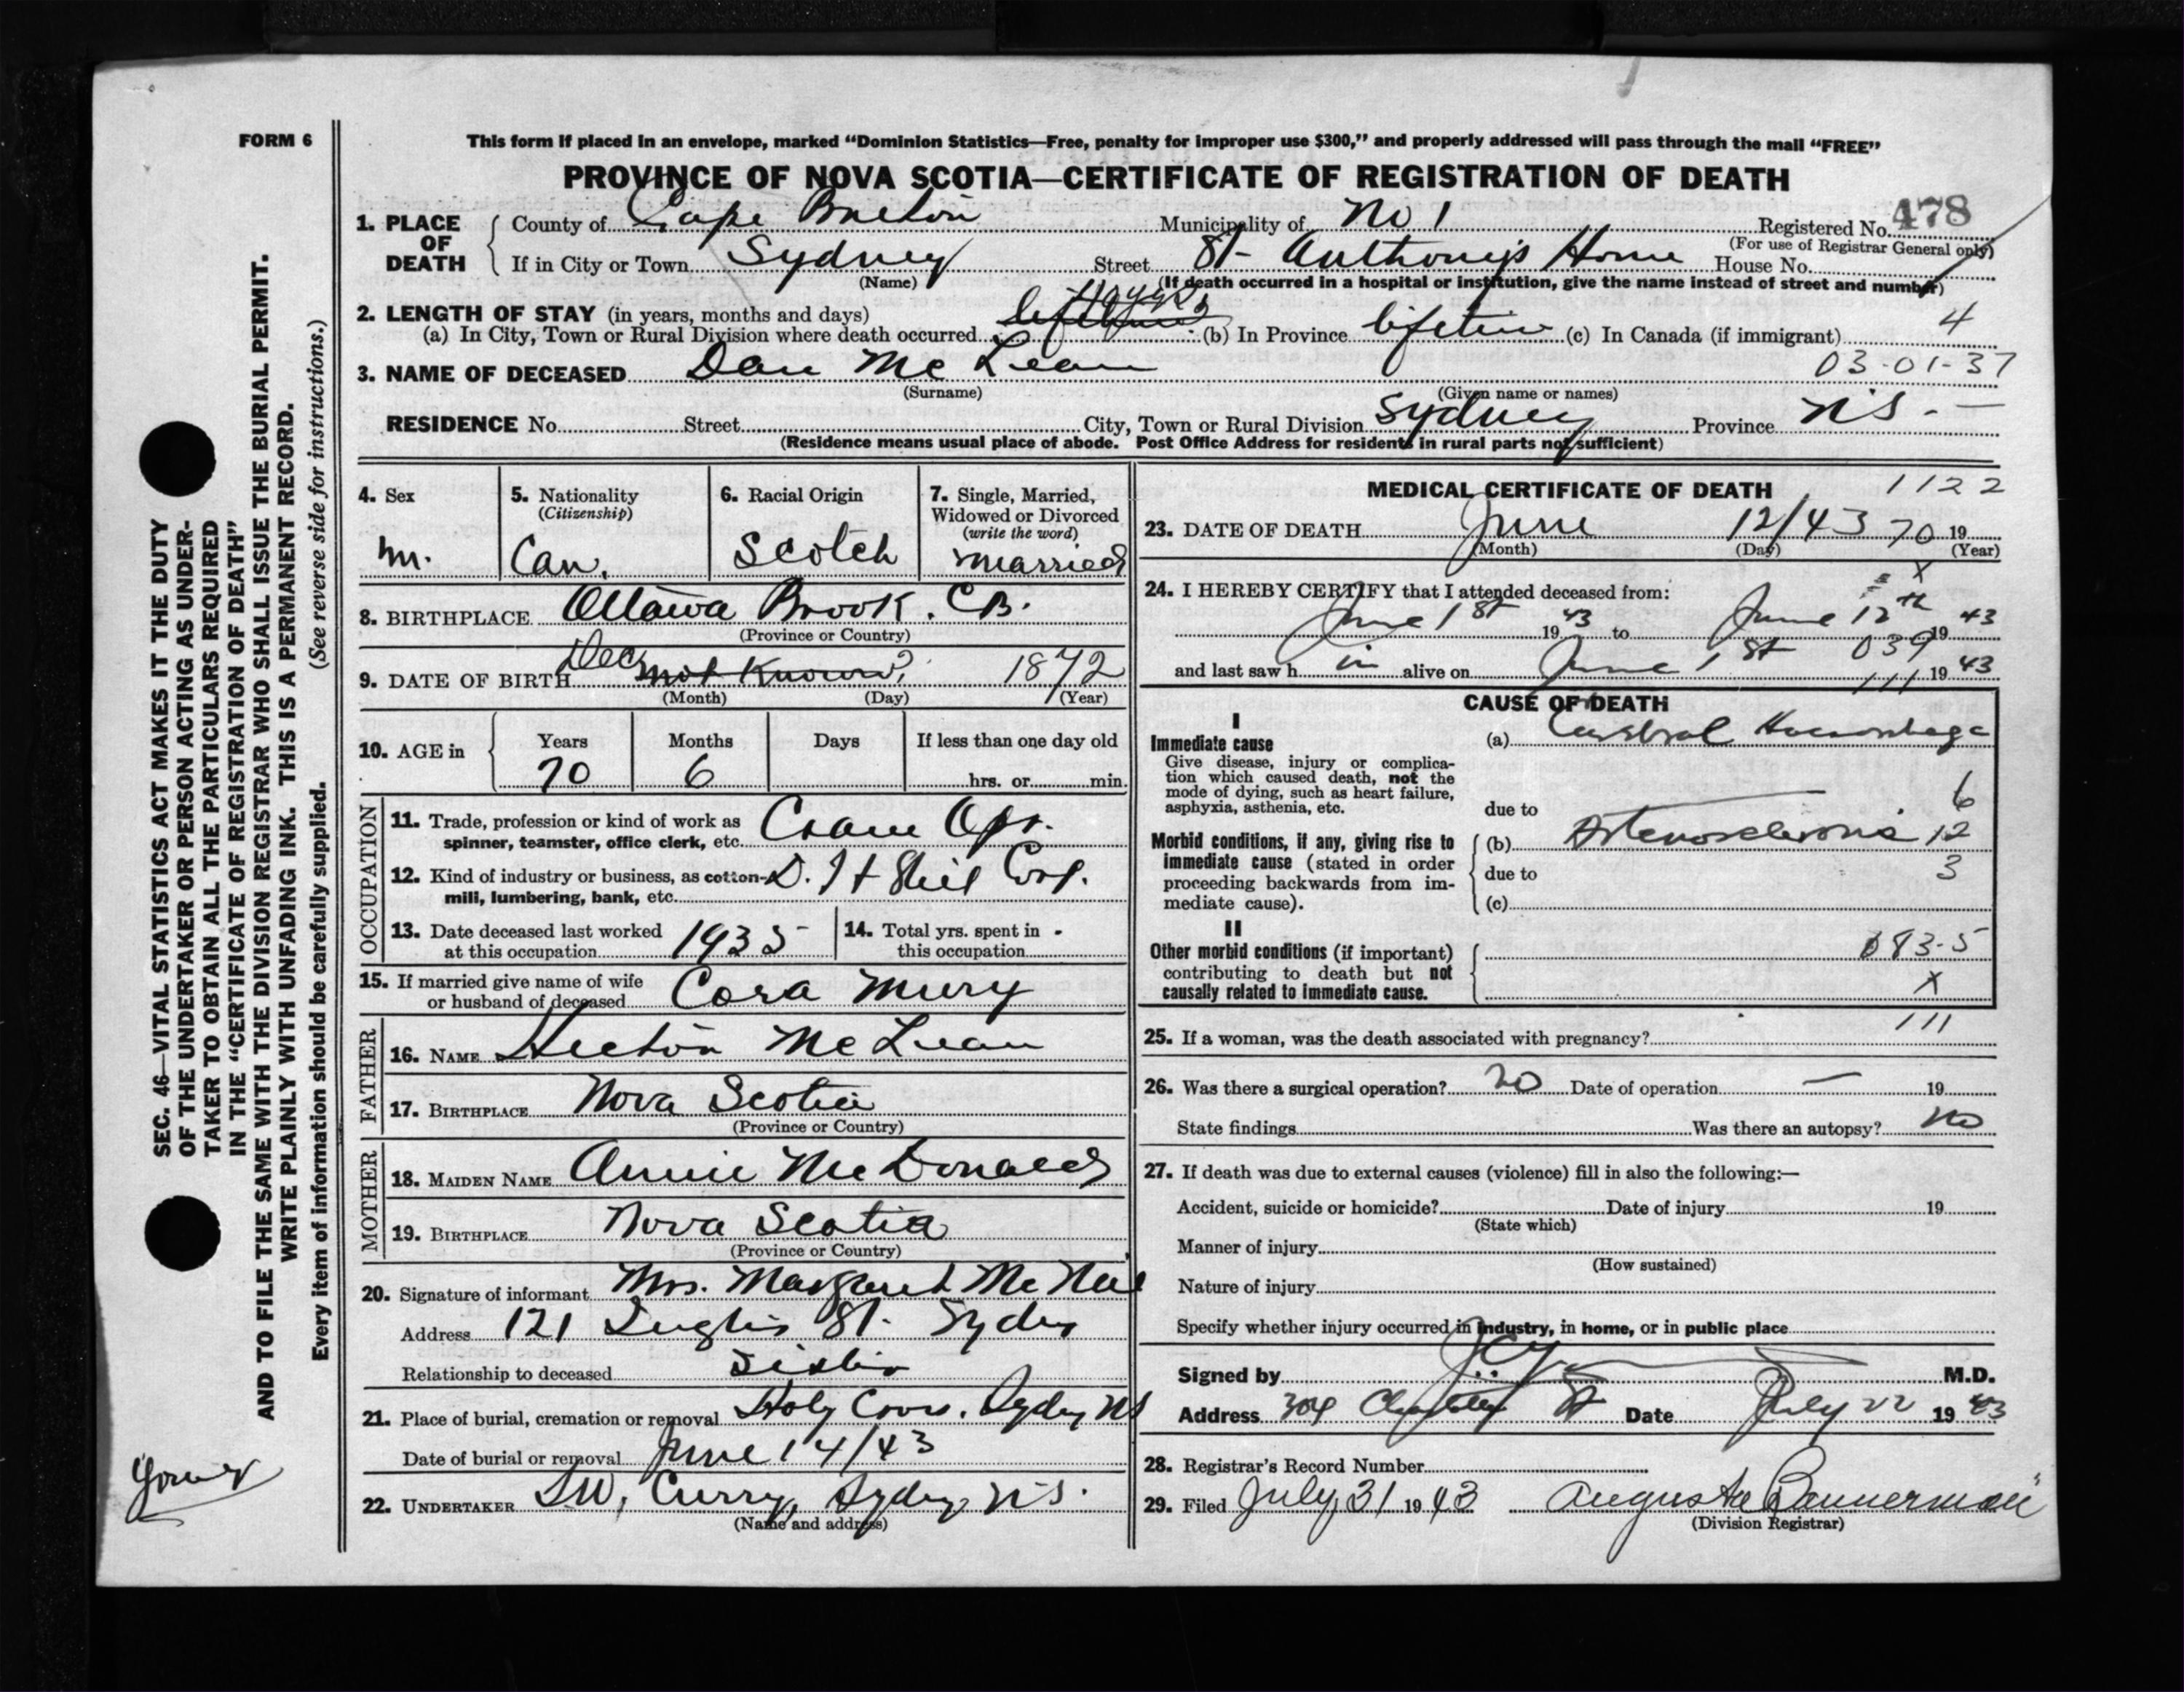 FORM 6
This form if placed in an envelope, marked “Dominion Statistics—Free, penalty for improper use $300,” and properly addressed will pass through the mail “FREE”
PROVINCE OF NOVA SCOTIA—CERTIFICATE OF REGISTRATION OF DEATH
1. PLACE OF DEATH County of Cape Breton Municipality of No 1 Registered No. 478
(For use of Registrar General only)
If in City or Town Sydney Street St- Anthony's Home House No.
(Name) (If death occurred in a hospital or institution, give the name instead of street and number)
2. LENGTH OF STAY (in years, months and days) 4
(a) In City, Town or Rural Division where death occurred lifetime (b) In Province lifetime (c) In Canada (if immigrant)
3. NAME OF DECEASED Dan Mc Lean 03-01-37
(Surname) (Given name or names)
RESIDENCE No. Street City, Town or Rural Division Sydney Province N.S.-—
(Residence means usual place of abode. Post Office Address for residents in rural parts not sufficient)
4. Sex
m.
5. Nationality
(Citizenship)
Can.
6. Racial Origin
Scotch
7. Single, Married,
Widowed or Divorced
(write the word)
married
8. BIRTHPLACE Ottawa Brook. C.B.
(Province or Country)
9. DATE OF BIRTH Dec not Known 1872
(Month) (Day) (Year)
10. AGE in Years Months Days If less than one day old
70 6 hrs. or min.
OCCUPATION
11. Trade, profession or kind of work as
spinner, teamster, office clerk, etc. Crane Opr.
12. Kind of industry or business, as cotton-
mill, lumbering, bank, etc. D. I & Steel Corp.
13. Date deceased last worked
at this occupation 1935
14. Total yrs. spent in -
this occupation
15. If married give name of wife
or husband of deceased Cora Mury
FATHER
16. NAME Hector Mc Lean
17. BIRTHPLACE Nova Scotia
(Province or Country)
MOTHER
18. MAIDEN NAME Annie Mc Donald
19. BIRTHPLACE Nova Scotia
(Province or Country)
20. Signature of informant Mrs. Margaret Mc Neil
Address 121 St. Sydney
Relationship to deceased Sister
21. Place of burial, cremation or removal Holy Cross. Sydney NS
Date of burial or removal June 14/43
22. UNDERTAKER Curry, Sydney N.S.
(Name and address)
MEDICAL CERTIFICATE OF DEATH 1122
23. DATE OF DEATH June 12/43 70 19
(Month) (Day) (Year)
x
24. I HEREBY CERTIFY that I attended deceased from:
June 1st 19 43 to June 12th 19 43
039
and last saw h im alive on June 1st 19 43
111
CAUSE OF DEATH
I
Immediate cause (a) Cerebral Haemorrhage
Give disease, injury or complica-
tion which caused death, not the
mode of dying, such as heart failure,
asphyxia, asthenia, etc.
due to 6
Morbid conditions, if any, giving rise to (b) Arteriosclerosis 12
immediate cause (stated in order
proceeding backwards from im-
mediate cause).
due to 3
(c)
II
Other morbid conditions (if important) 083-5
contributing to death but not
causally related to immediate cause. x
111
25. If a woman, was the death associated with pregnancy?
26. Was there a surgical operation? no Date of operation — 19
State findings Was there an autopsy? no
27. If death was due to external causes (violence) fill in also the following:—
Accident, suicide or homicide? Date of injury 19
(State which)
Manner of injury
(How sustained)
Nature of injury
Specify whether injury occurred in industry, in home, or in public place
Signed by M.D.
Address 304 Charlotte St Date July 22 19 43
28. Registrar's Record Number
29. Filed July 31 19 43 Auguste Bannerman
(Division Registrar)
SEC. 46—VITAL STATISTICS ACT MAKES IT THE DUTY
OF THE UNDERTAKER OR PERSON ACTING AS UNDER-
TAKER TO OBTAIN ALL THE PARTICULARS REQUIRED
IN THE “CERTIFICATE OF REGISTRATION OF DEATH”
AND TO FILE THE SAME WITH THE DIVISION REGISTRAR WHO SHALL ISSUE THE BURIAL PERMIT.
WRITE PLAINLY WITH UNFADING INK. THIS IS A PERMANENT RECORD.
Every item of information should be carefully supplied. (See reverse side for instructions.)